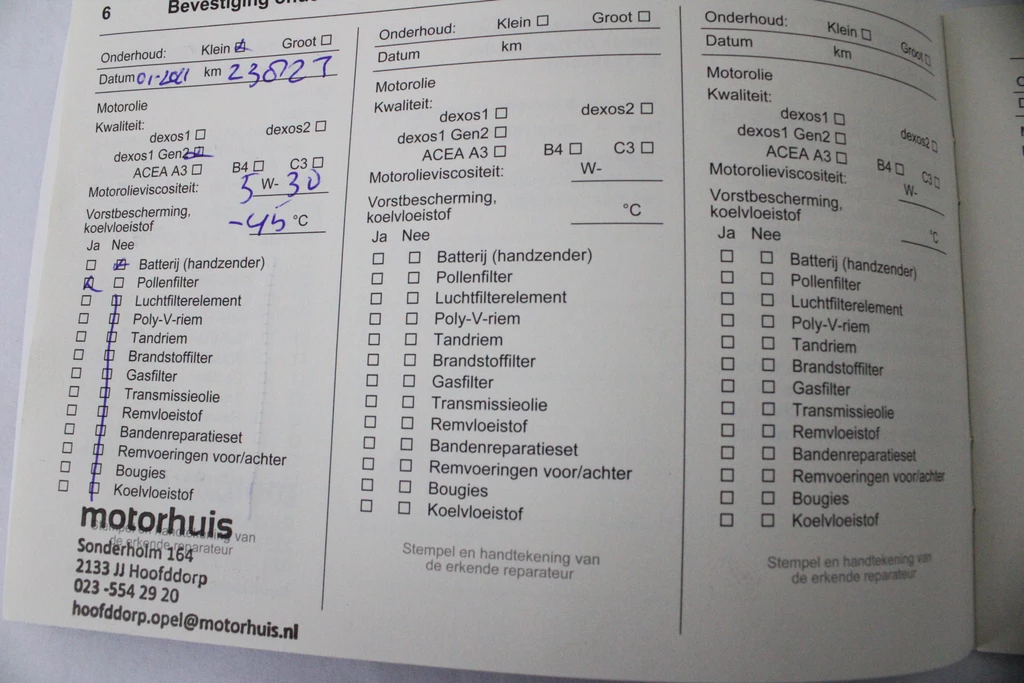 6
Bevestiging
Onderhoud: Klein ☑ Groot ☐
Datum 01-2021 km 238127
Motorolie
Kwaliteit:
dexos1 ☐ dexos2 ☐
dexos1 Gen2 ☑
ACEA A3 ☐ B4 ☐ C3 ☐
Motorolieviscositeit: 5 W- 30
Vorstbescherming,
koelvloeistof -45 °C
Ja Nee
☐ ☑ Batterij (handzender)
☑ ☐ Pollenfilter
☐ ☐ Luchtfilterelement
☐ ☐ Poly-V-riem
☐ ☐ Tandriem
☐ ☐ Brandstoffilter
☐ ☐ Gasfilter
☐ ☐ Transmissieolie
☐ ☐ Remvloeistof
☐ ☐ Bandenreparatieset
☐ ☐ Remvoeringen voor/achter
☐ ☐ Bougies
☐ ☐ Koelvloeistof
motorhuis
Stempel en handtekening van
de erkende reparateur
Sonderholm 164
2133 JJ Hoofddorp
023 -554 29 20
hoofddorp.opel@motorhuis.nl
Onderhoud: Klein ☐ Groot ☐
Datum km
Motorolie
Kwaliteit:
dexos1 ☐ dexos2 ☐
dexos1 Gen2 ☐
ACEA A3 ☐ B4 ☐ C3 ☐
Motorolieviscositeit: W-
Vorstbescherming,
koelvloeistof °C
Ja Nee
☐ ☐ Batterij (handzender)
☐ ☐ Pollenfilter
☐ ☐ Luchtfilterelement
☐ ☐ Poly-V-riem
☐ ☐ Tandriem
☐ ☐ Brandstoffilter
☐ ☐ Gasfilter
☐ ☐ Transmissieolie
☐ ☐ Remvloeistof
☐ ☐ Bandenreparatieset
☐ ☐ Remvoeringen voor/achter
☐ ☐ Bougies
☐ ☐ Koelvloeistof
Stempel en handtekening van
de erkende reparateur
Onderhoud: Klein ☐ Groot ☐
Datum km
Motorolie
Kwaliteit:
dexos1 ☐ dexos2 ☐
dexos1 Gen2 ☐
ACEA A3 ☐ B4 ☐ C3 ☐
Motorolieviscositeit: W-
Vorstbescherming,
koelvloeistof °C
Ja Nee
☐ ☐ Batterij (handzender)
☐ ☐ Pollenfilter
☐ ☐ Luchtfilterelement
☐ ☐ Poly-V-riem
☐ ☐ Tandriem
☐ ☐ Brandstoffilter
☐ ☐ Gasfilter
☐ ☐ Transmissieolie
☐ ☐ Remvloeistof
☐ ☐ Bandenreparatieset
☐ ☐ Remvoeringen voor/achter
☐ ☐ Bougies
☐ ☐ Koelvloeistof
Stempel en handtekening van
de erkende reparateur